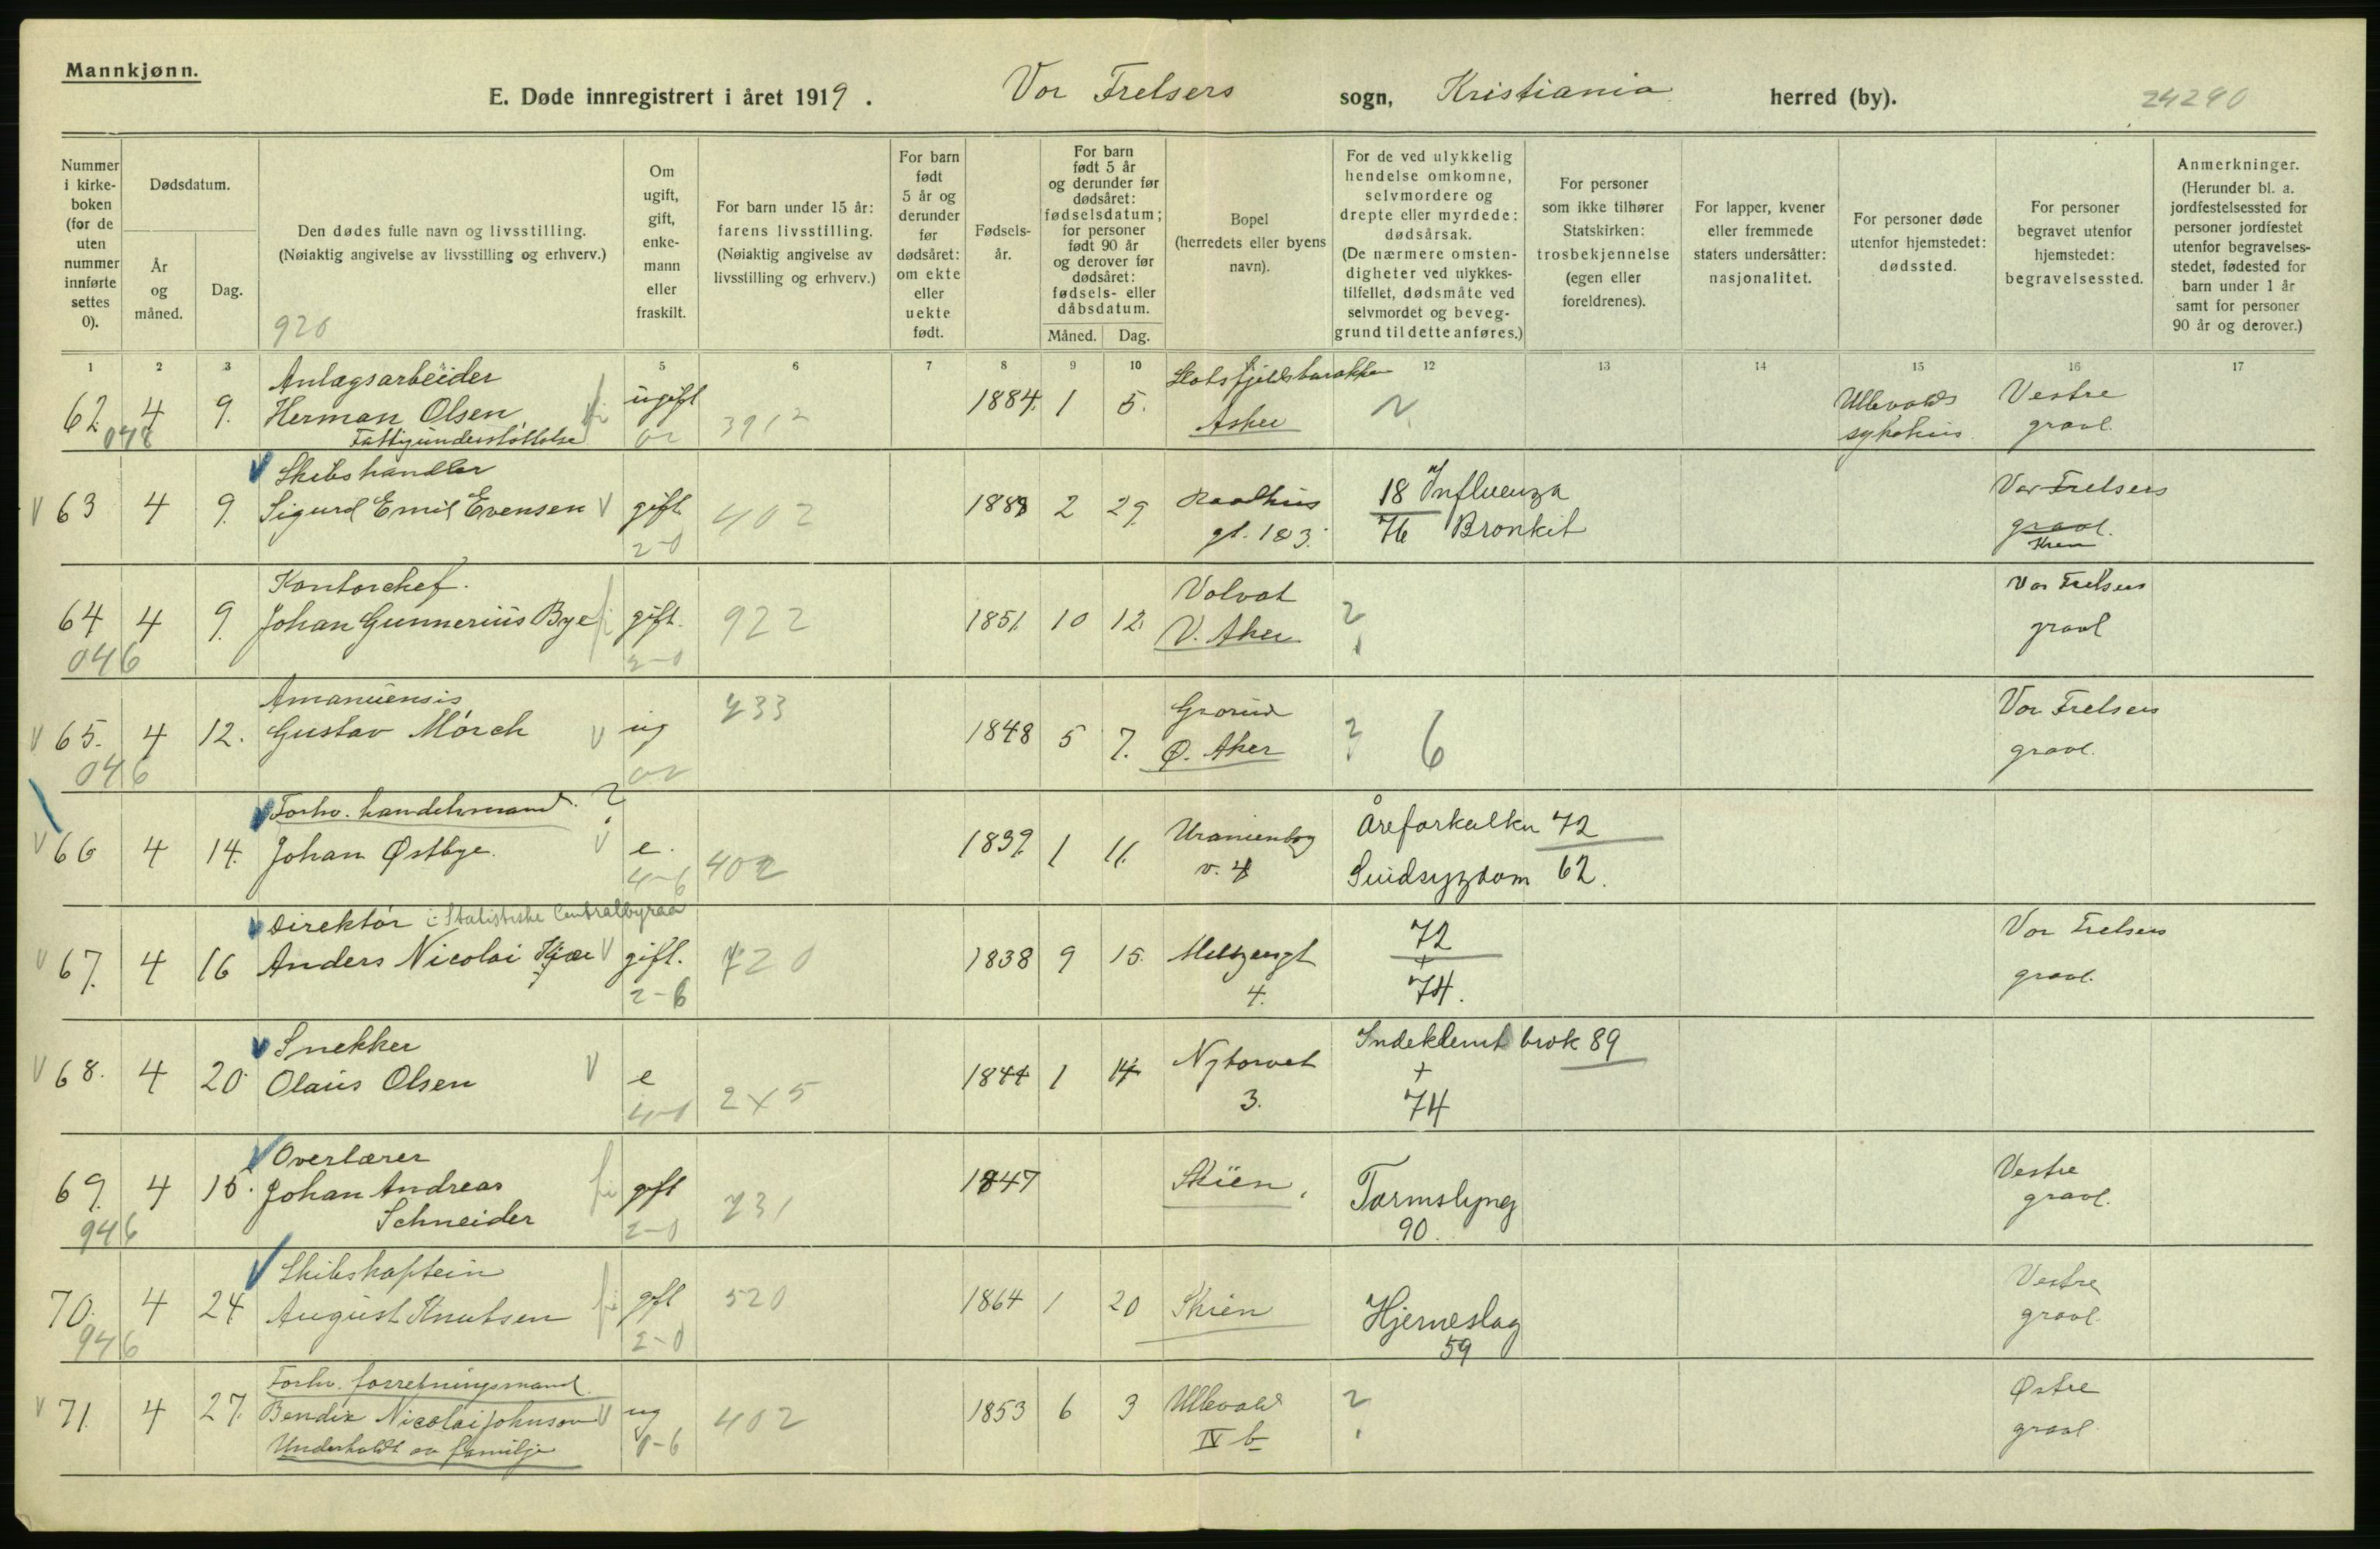 Mannkjønn.
E. Døde innregistrert i året 1919. Vor Frelsers sogn, Kristiania herred (by). 24290
Nummer i kirkeboken (for de uten nummer innførte settes 0).
Dødsdatum.
År og måned.
Dag.
Den dødes fulle navn og livsstilling.
(Nøiaktig angivelse av livsstilling og erhverv.)
920
Om ugift, gift, enkemann eller fraskilt.
For barn under 15 år: farens livsstilling.
(Nøiaktig angivelse av livsstilling og erhverv.)
For barn født 5 år og derunder før dødsåret: om ekte eller uekte født.
Fødselsår.
For barn født 5 år og derunder før dødsåret: fødselsdatum; for personer født 90 år og derover før dødsåret: fødsels- eller dåbsdatum.
Måned. Dag.
Bopel
(herredets eller byens navn).
For de ved ulykkelig hendelse omkomne, selvmordere og drepte eller myrdede: dødsårsak.
(De nærmere omstendigheter ved ulykkestilfellet, dødsmåte ved selvmordet og beveggrund til dette anføres.)
For personer som ikke tilhører Statskirken: trosbekjennelse
(egen eller foreldrenes).
For lapper, kvener eller fremmede staters undersåtter: nasjonalitet.
For personer døde utenfor hjemstedet: dødssted.
For personer begravet utenfor hjemstedet: begravelsessted.
Anmerkninger.
(Herunder bl. a. jordfestelsessted for personer jordfestet utenfor begravelsesstedet, fødested for barn under 1 år samt for personer 90 år og derover.)
1 2 3 5 6 7 8 9 10 12 13 14 15 16 17
Anlægsarbeider
62 4 9. Herman Olsen ugift 3912 1884 1 5. Asker Ullevolds sykehus Vestre gravl.
048 Fattigunderstøttelse
Skibshandler
63 4 9. Sigurd Emil Evensen gift 402 1888 2 29. Raadhus gt. 1&3. 18 Influenza 76 Bronkit Vor Frelsers gravl. Krem
2-0
Kontorchef.
64 4 9. Johan Gunnerius Bye gift. 922 1851 10 12. Volvat V. Aker ? Vor Frelsers gravl
046 2-0
Amanuensis
65. 4 12. Gustav Mørch ug 733 1848 5 7. Grorud Ø. Aker ? 6 Vor Frelsers gravl.
046
Forhv. handelsmand ?
66 4 14. Johan Østbye. e. 402 1839. 1 11. Uranienbg v. 4 Åreforkalkn 72 Suidsygdom 62.
4-6
Direktør i Statistiske Centralbyraa
67. 4 16 Anders Nicolai Kjær gift. 720 1838 9 15. Meltzersgt 4. 72 + 74. Vor Frelsers gravl.
2-6
Snekker
68. 4 20 Olaus Olsen e 2x5 1844 1 14 Nytorvet 3. Indeklemt brok 89 + 74
4-1
Overlærer
69. 4 15. Johan Andreas Schneider gift 731 1847 Skien. Tarmslyng 90. Vestre gravl.
946 2-0
Skibskaptein
70. 4 24 August Knutsen gift 520 1864 1 20 Skien Hjerneslag 59 Vestre gravl.
946 2-0
Forhv. forretningsmand.
71. 4 27. Bendix Nicolai Johnson ug 402 1853 6 3 Ullevold IV b ? Østre gravl
Underholdt av familje 1-6